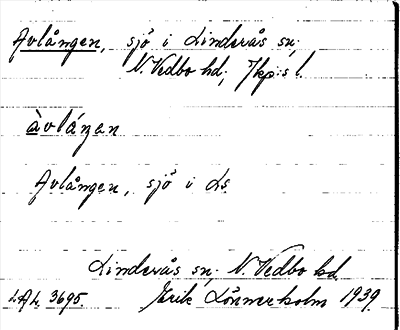 Avlången, sjö i Linderås sn;
N. Vedbo hd; Jkp:s l.
àvláŋen
Avlången, sjö i Ls
Linderås sn; N. Vedbo hd.
LAL 3695 Erik Lönnerholm 1939.